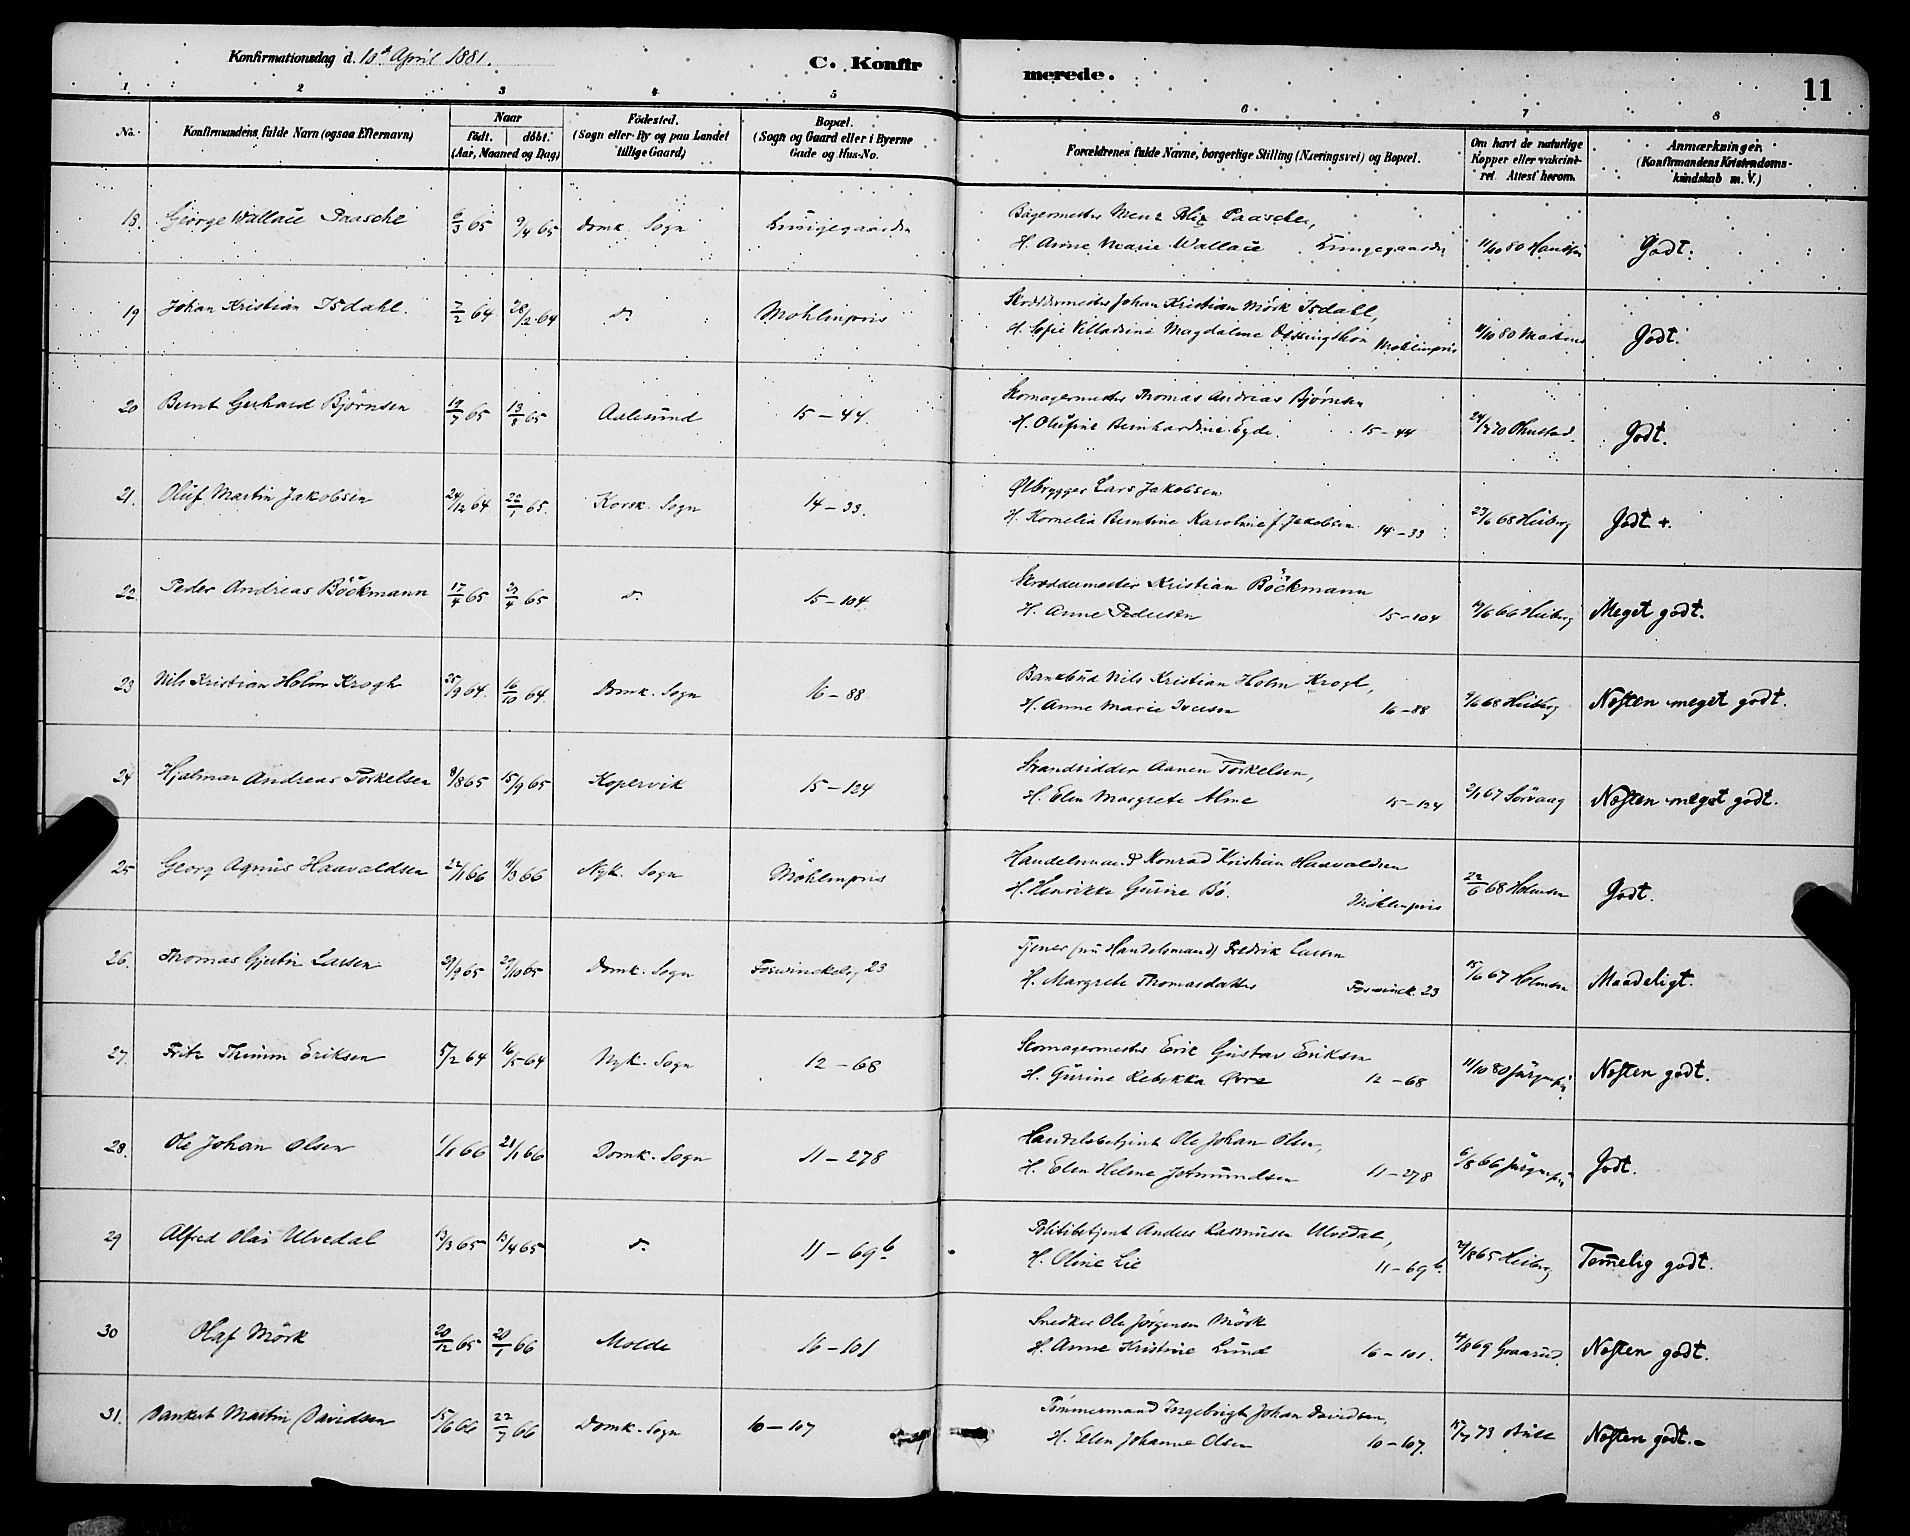 Konfirmationsdag d. 10de April 1881.
C. Konfirmerede.
11
1 2 3 4 5 6 7 8
No. Konfirmandens fulde Navn (ogsaa Efternavn) Naar födt. döbt. (Aar, Maaned og Dag) Födested. (Sogn eller By og paa Landet tillige Gaard) Bopæl. (Sogn og Gaard eller i Byerne Gade og Hus-No. Forældrenes fulde Navne, borgerlige Stilling (Næringsvei) og Bopæl. Om havt de naturlige Kopper eller vakcineret. Attest herom. Anmærkninger. (Konfirmandens Kristendomskundskab m. V.)
18. George Wallace Paasche 6/3 65 9/4 65 Domk. Sogn Lungegaarden Bagermester Blix Paasche,
H. Anne Marie Wallace Lungegaarden 11/10 80 Godt.
19 Johan Kristian Isdahl. 7/2 64 28/2 64 do. Möhlenpris Skræddermester Johan Kristian Mörk Isdahl,
H. Sofie Magdalene Möhlenpris 11/10 80 Martens Godt.
20 Bernt Gerhard Björnsen 19/7 65 13/8 65 Aalesund 15-44. Skomagermester Thomas Andreas Bjørnsen
H. Olufine Bernhardine Egde. 15-44 24/7 70 Godt.
21. Oluf Martin Jakobsen 24/12 64. 22/1 65. Korsk. Sogn 14-33. Ølbrygger Lars Jakobsen
H. Kornelia Berntine Karoline f Jakobsen 14-33 23/6 68 Heiberg Godt +.
22. Peder Andreas Böckmann 17/4 65 23/4 65 do. 15-104. Skræddermester Kristian Böckmann
H. Anne Pedersen 15-104 66 Heiberg Meget godt.
23 Nils Kristian Holm Krogh 25/9 64. 16/10 64. Domk. Sogn 16-88 Bankbud Nils Kristian Holm Krogh,
H. Anne Marie Iversen 16-88 68 Heiberg Næsten meget godt.
24 Hjalmar Andreas Torkelsen 8/8 65 15/9 65 Kopervik 15-124 Strandridder Aanen Torkelsen,
H. Elen Margrete Alme 15-124 67 Sörvaag Næsten meget godt.
25 Georg Agnus Haavaldsen 22/1 66 11/3 66 Nyk. Sogn Möhlenpris Handelsmand Konrad Kristian Haavaldsen
H. Henrikke Gurine Bö. Möhlenpris 22/6 68 Holmsen Godt.
26. Thomas Gjertin Larsen 29/9 65 29/10 65 Domk. Sogn Forswinckelsg 23 Tjener (nu Handelsmand) Fredrik Larsen
H. Margrete Thomasdatter Forswinck. 23 15/6 67 Holmsen Maadeligt.
27. Fritz Thimm Eriksen 5/2 64 16/5 64 Nyk. Sogn 12-68 Skomagermester Erik Gustav Eriksen
H. Gurine Rebekka Øvre 12-68 11/10 80 Næsten godt.
28. Ole Johan Olsen 1/1 66 21/1 66 Domk. Sogn 11-278 Handelsbetjent Ole Johan Olsen,
H. Elen Helene 11-278 6/8 66 Godt.
29 Alfred Olai Ulvedal 13/3 65 13/4 65 do. 11-69b. Politibetjent Anders Rasmusen Ulvedal,
H. Oline Lie 11-69b. 65 Heiberg Temmelig godt.
30 Olaf Mörk 20/12 65 20/1 66 Molde 16-101 Snedker Ole Jörgensen Mörk
H. Anne Kristine Lund 16-101. 69 Graarud. Næsten godt.
31. Dankert Martin Davidsen 15/6 66 22/7 66 Domk. Sogn 10-107 Tömmermand Ingebrigt Johan Davidsen,
H. Elen Johanne Olsen 10-107. 73 Næsten godt.-